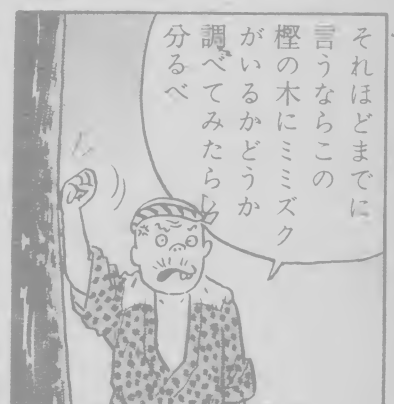 それほどまでに
言うならこの
樫の木にミミズク
がいるかどうか
調べてみたらし
分るべ